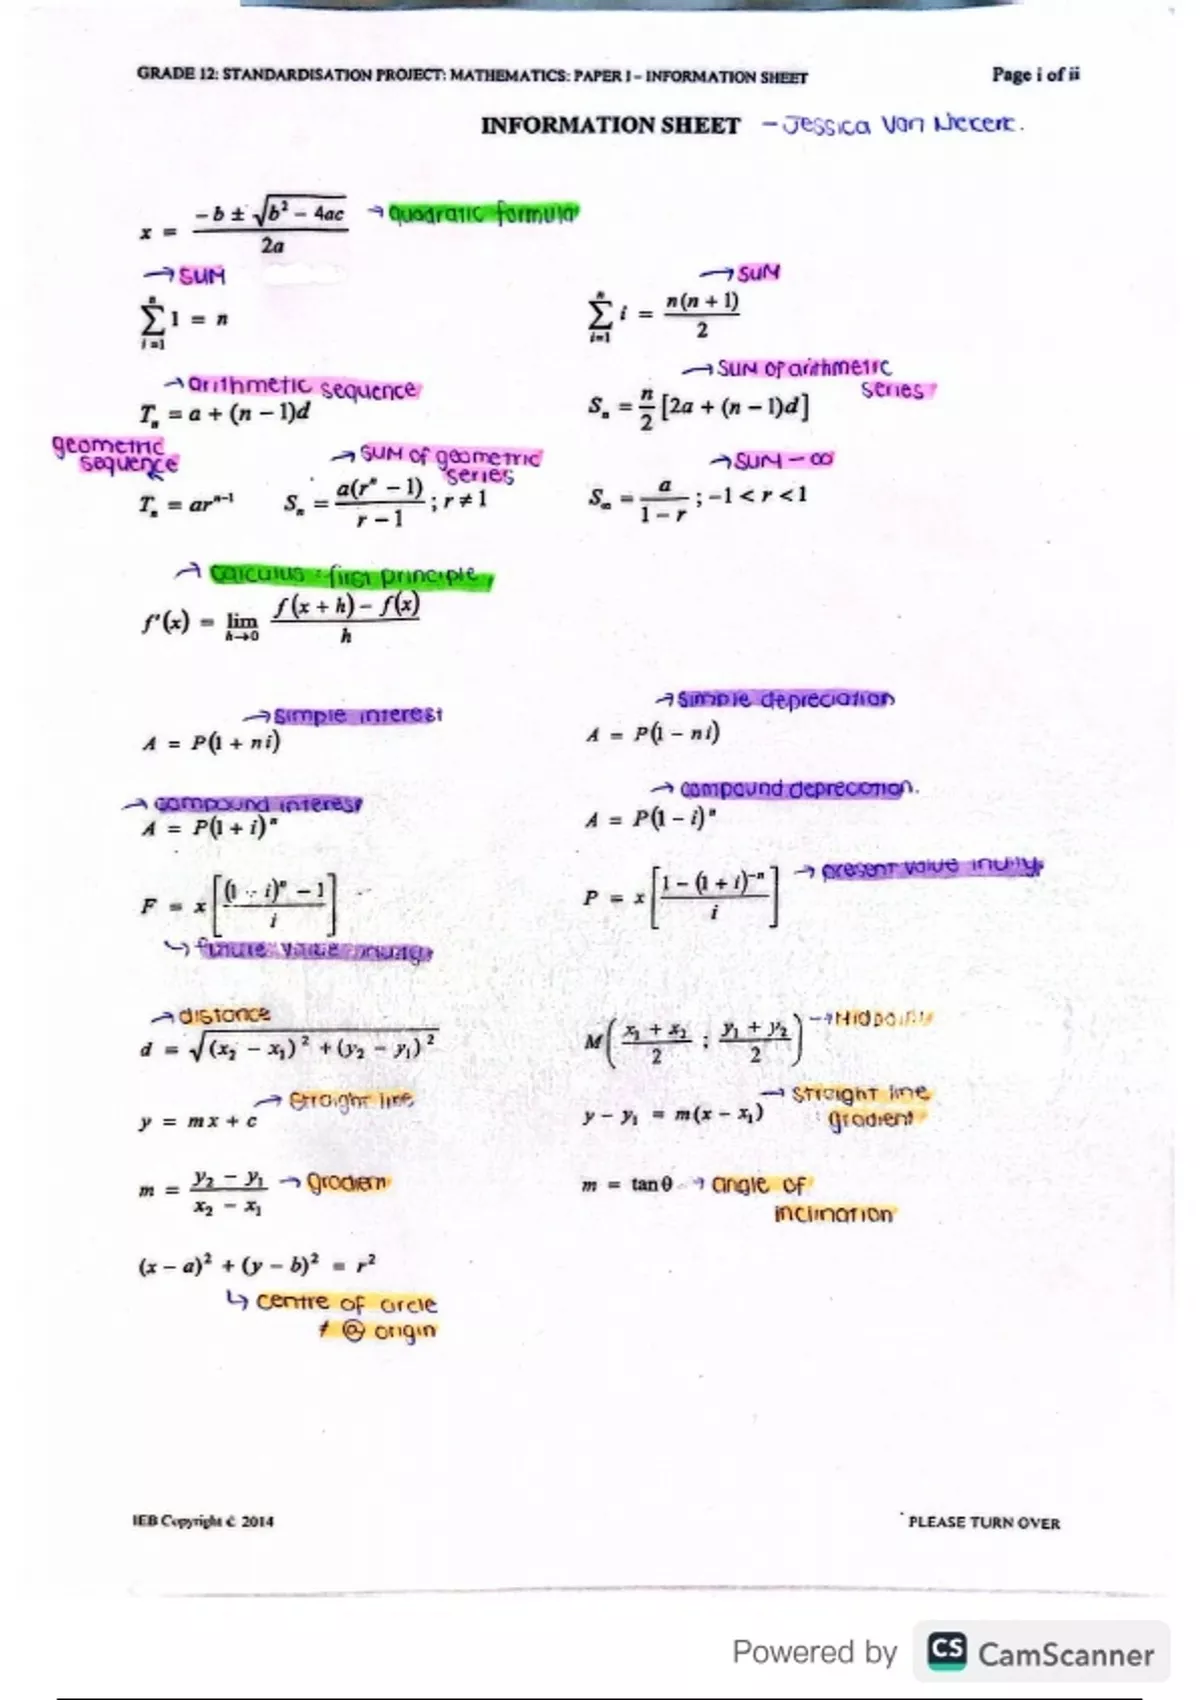 GRADE 12: STANDARDISATION PROJECT: MATHEMATICS: PAPER I – INFORMATION SHEET Page i of ii
INFORMATION SHEET - Jessica Van Niekerk.
x = (-b ± √(b² - 4ac)) / 2a → quadratic formula
→ SUM → SUM
∑_{i=1}^{n} 1 = n ∑_{i=1}^{n} i = n(n + 1) / 2
→ arithmetic sequence → SUM of arithmetic series
Tₙ = a + (n - 1)d Sₙ = n/2 [2a + (n - 1)d]
geometric sequence → SUM of geometric series → SUM - ∞
Tₙ = arⁿ⁻¹ Sₙ = a(rⁿ - 1) / (r - 1) ; r ≠ 1 S∞ = a / (1 - r) ; -1 < r < 1
→ calculus : first principle
f'(x) = lim_{h→0} (f(x + h) - f(x)) / h
→ simple interest → simple depreciation
A = P(1 + ni) A = P(1 - ni)
→ compound interest → compound depreciation.
A = P(1 + i)ⁿ A = P(1 - i)ⁿ
F = x[((1 + i)ⁿ - 1) / i] P = x[(1 - (1 + i)⁻ⁿ) / i] → present value
↳ future value
→ distance
d = √((x₂ - x₁)² + (y₂ - y₁)²) M((x₁ + x₂)/2 ; (y₁ + y₂)/2) → Midpoint
→ straight line → straight line gradient
y = mx + c y - y₁ = m(x - x₁)
m = (y₂ - y₁) / (x₂ - x₁) → gradient m = tanθ → angle of inclination
(x - a)² + (y - b)² = r²
↳ centre of circle
≠ @ origin
IEB Copyright © 2014 PLEASE TURN OVER
Powered by CS CamScanner